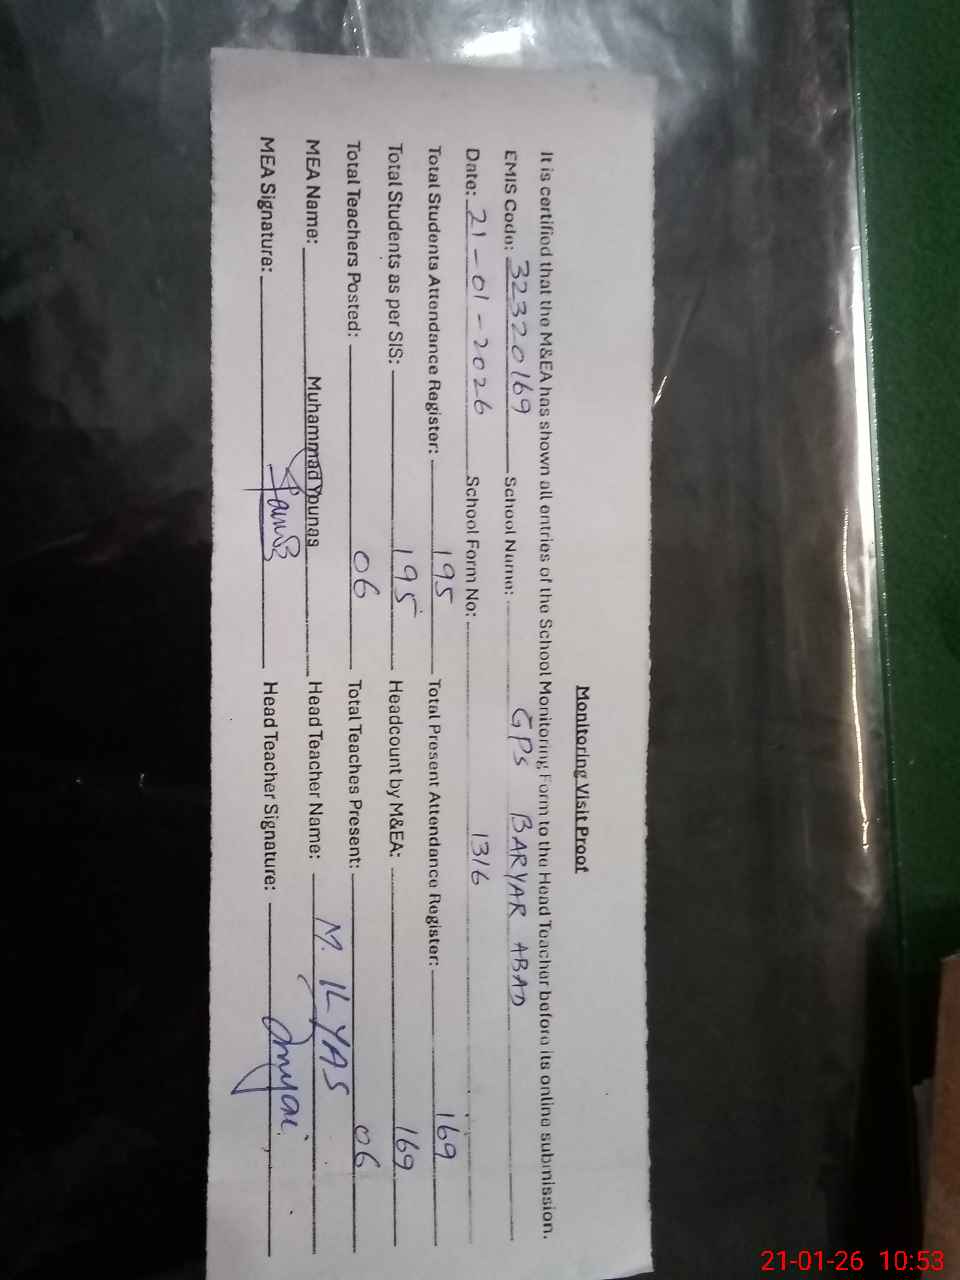 Monitoring Visit Proof
It is certified that the M&EA has shown all entries of the School Monitoring Form to the Head Teacher before its online submission.
EMIS Code: 32320169 School Name: GPS BARYAR ABAD
Date: 21-01-2026 School Form No: 1316
Total Students Attendance Register: 195 Total Present Attendance Register: 169
Total Students as per SIS: 195 Headcount by M&EA: 169
Total Teachers Posted: 06 Total Teaches Present: 06
MEA Name: Muhammad Younas Head Teacher Name: M. ILYAS
MEA Signature: Head Teacher Signature:
21-01-26 10:53